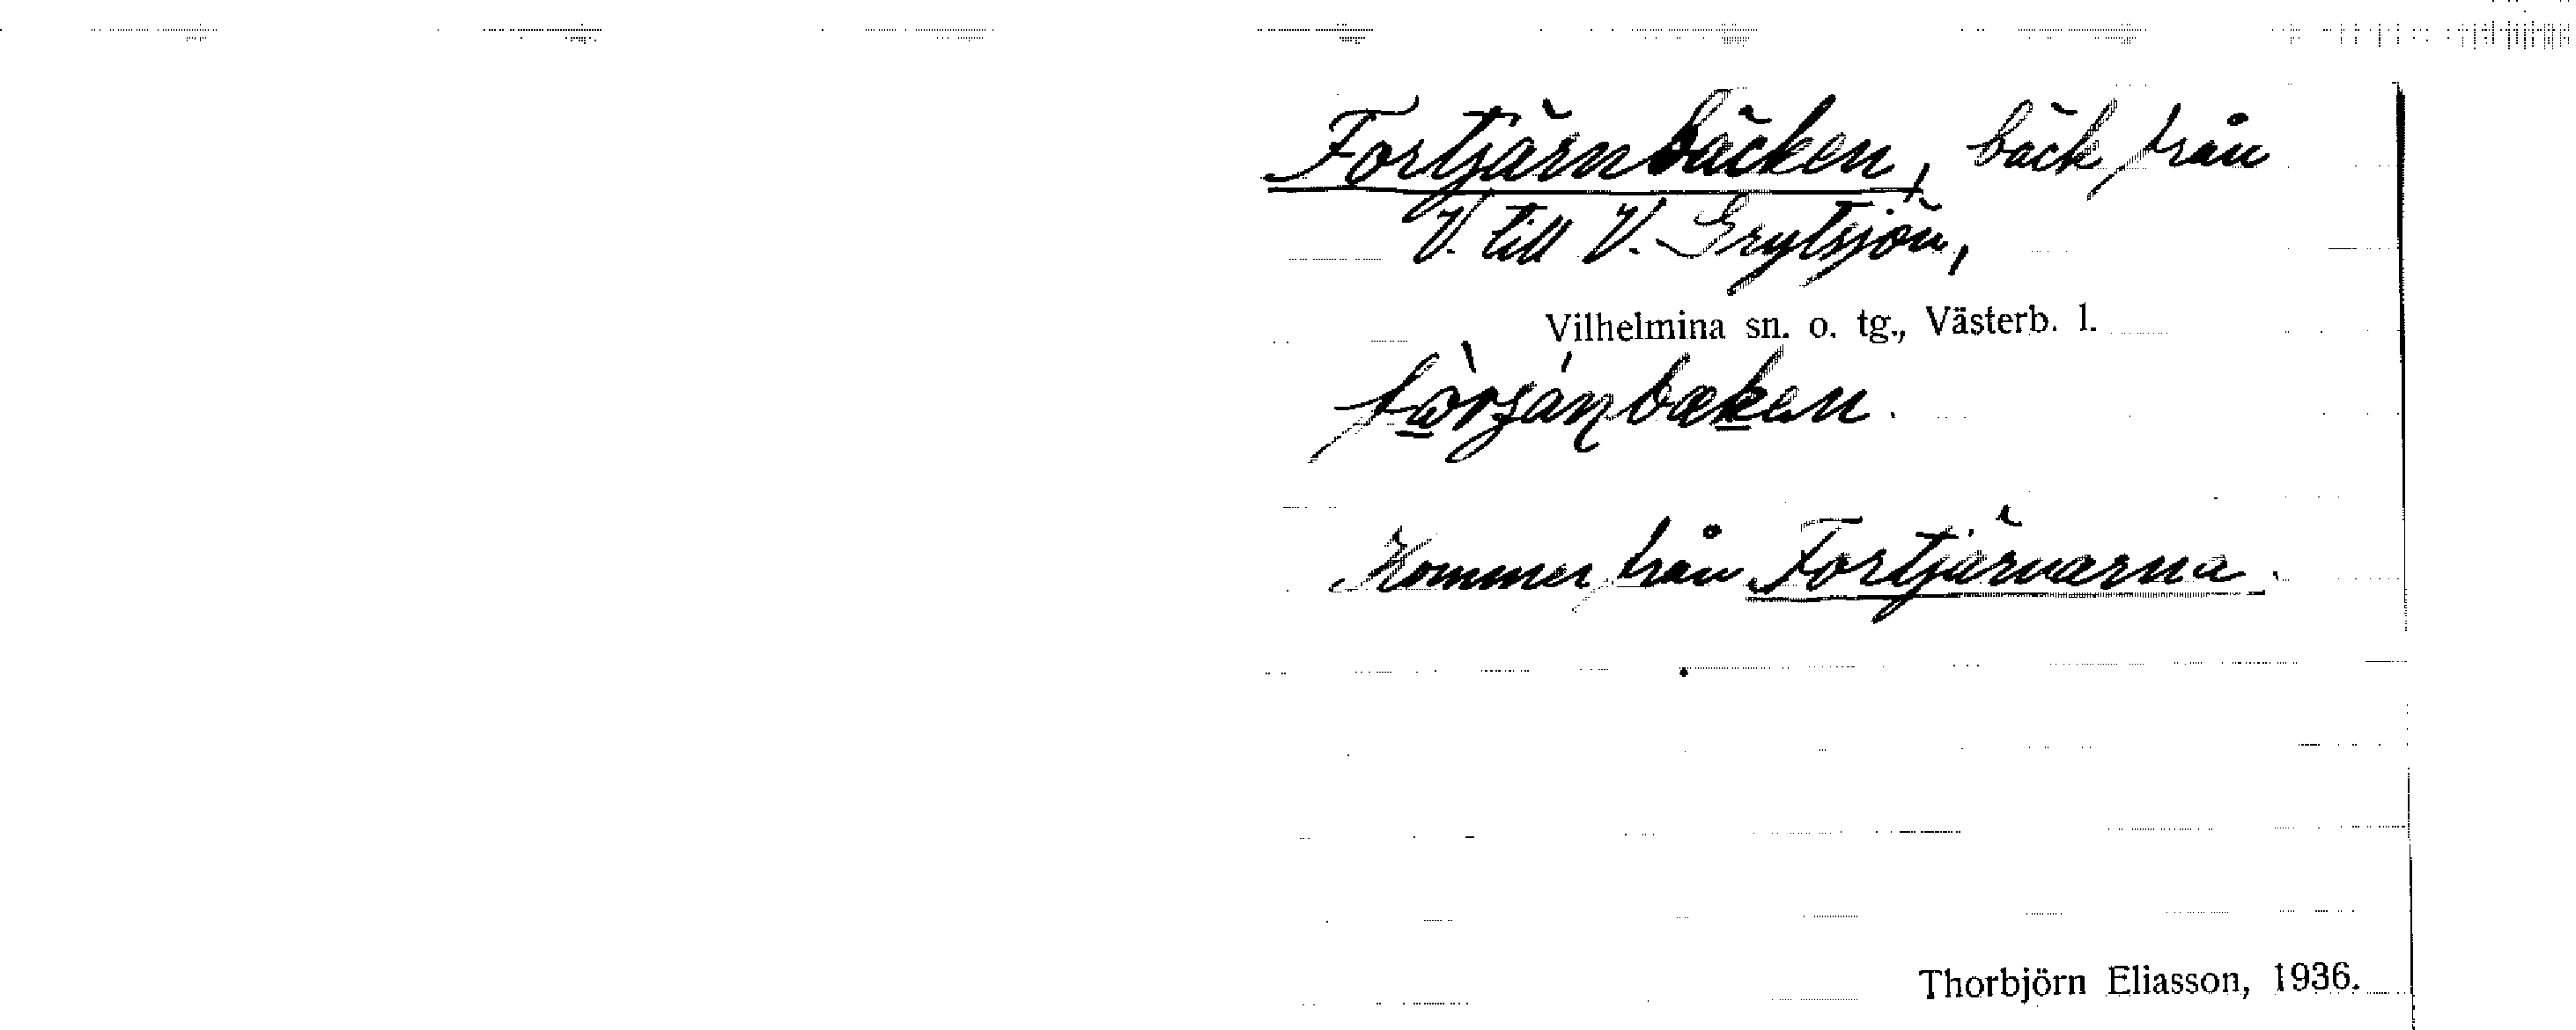 Fortjärnbäcken, bäck från
V. till V. Grytsjön,
Vilhelmina sn. o. tg., Västerb. l.
Kommer från Fortjärnarna.
Thorbjörn Eliasson, 1936.